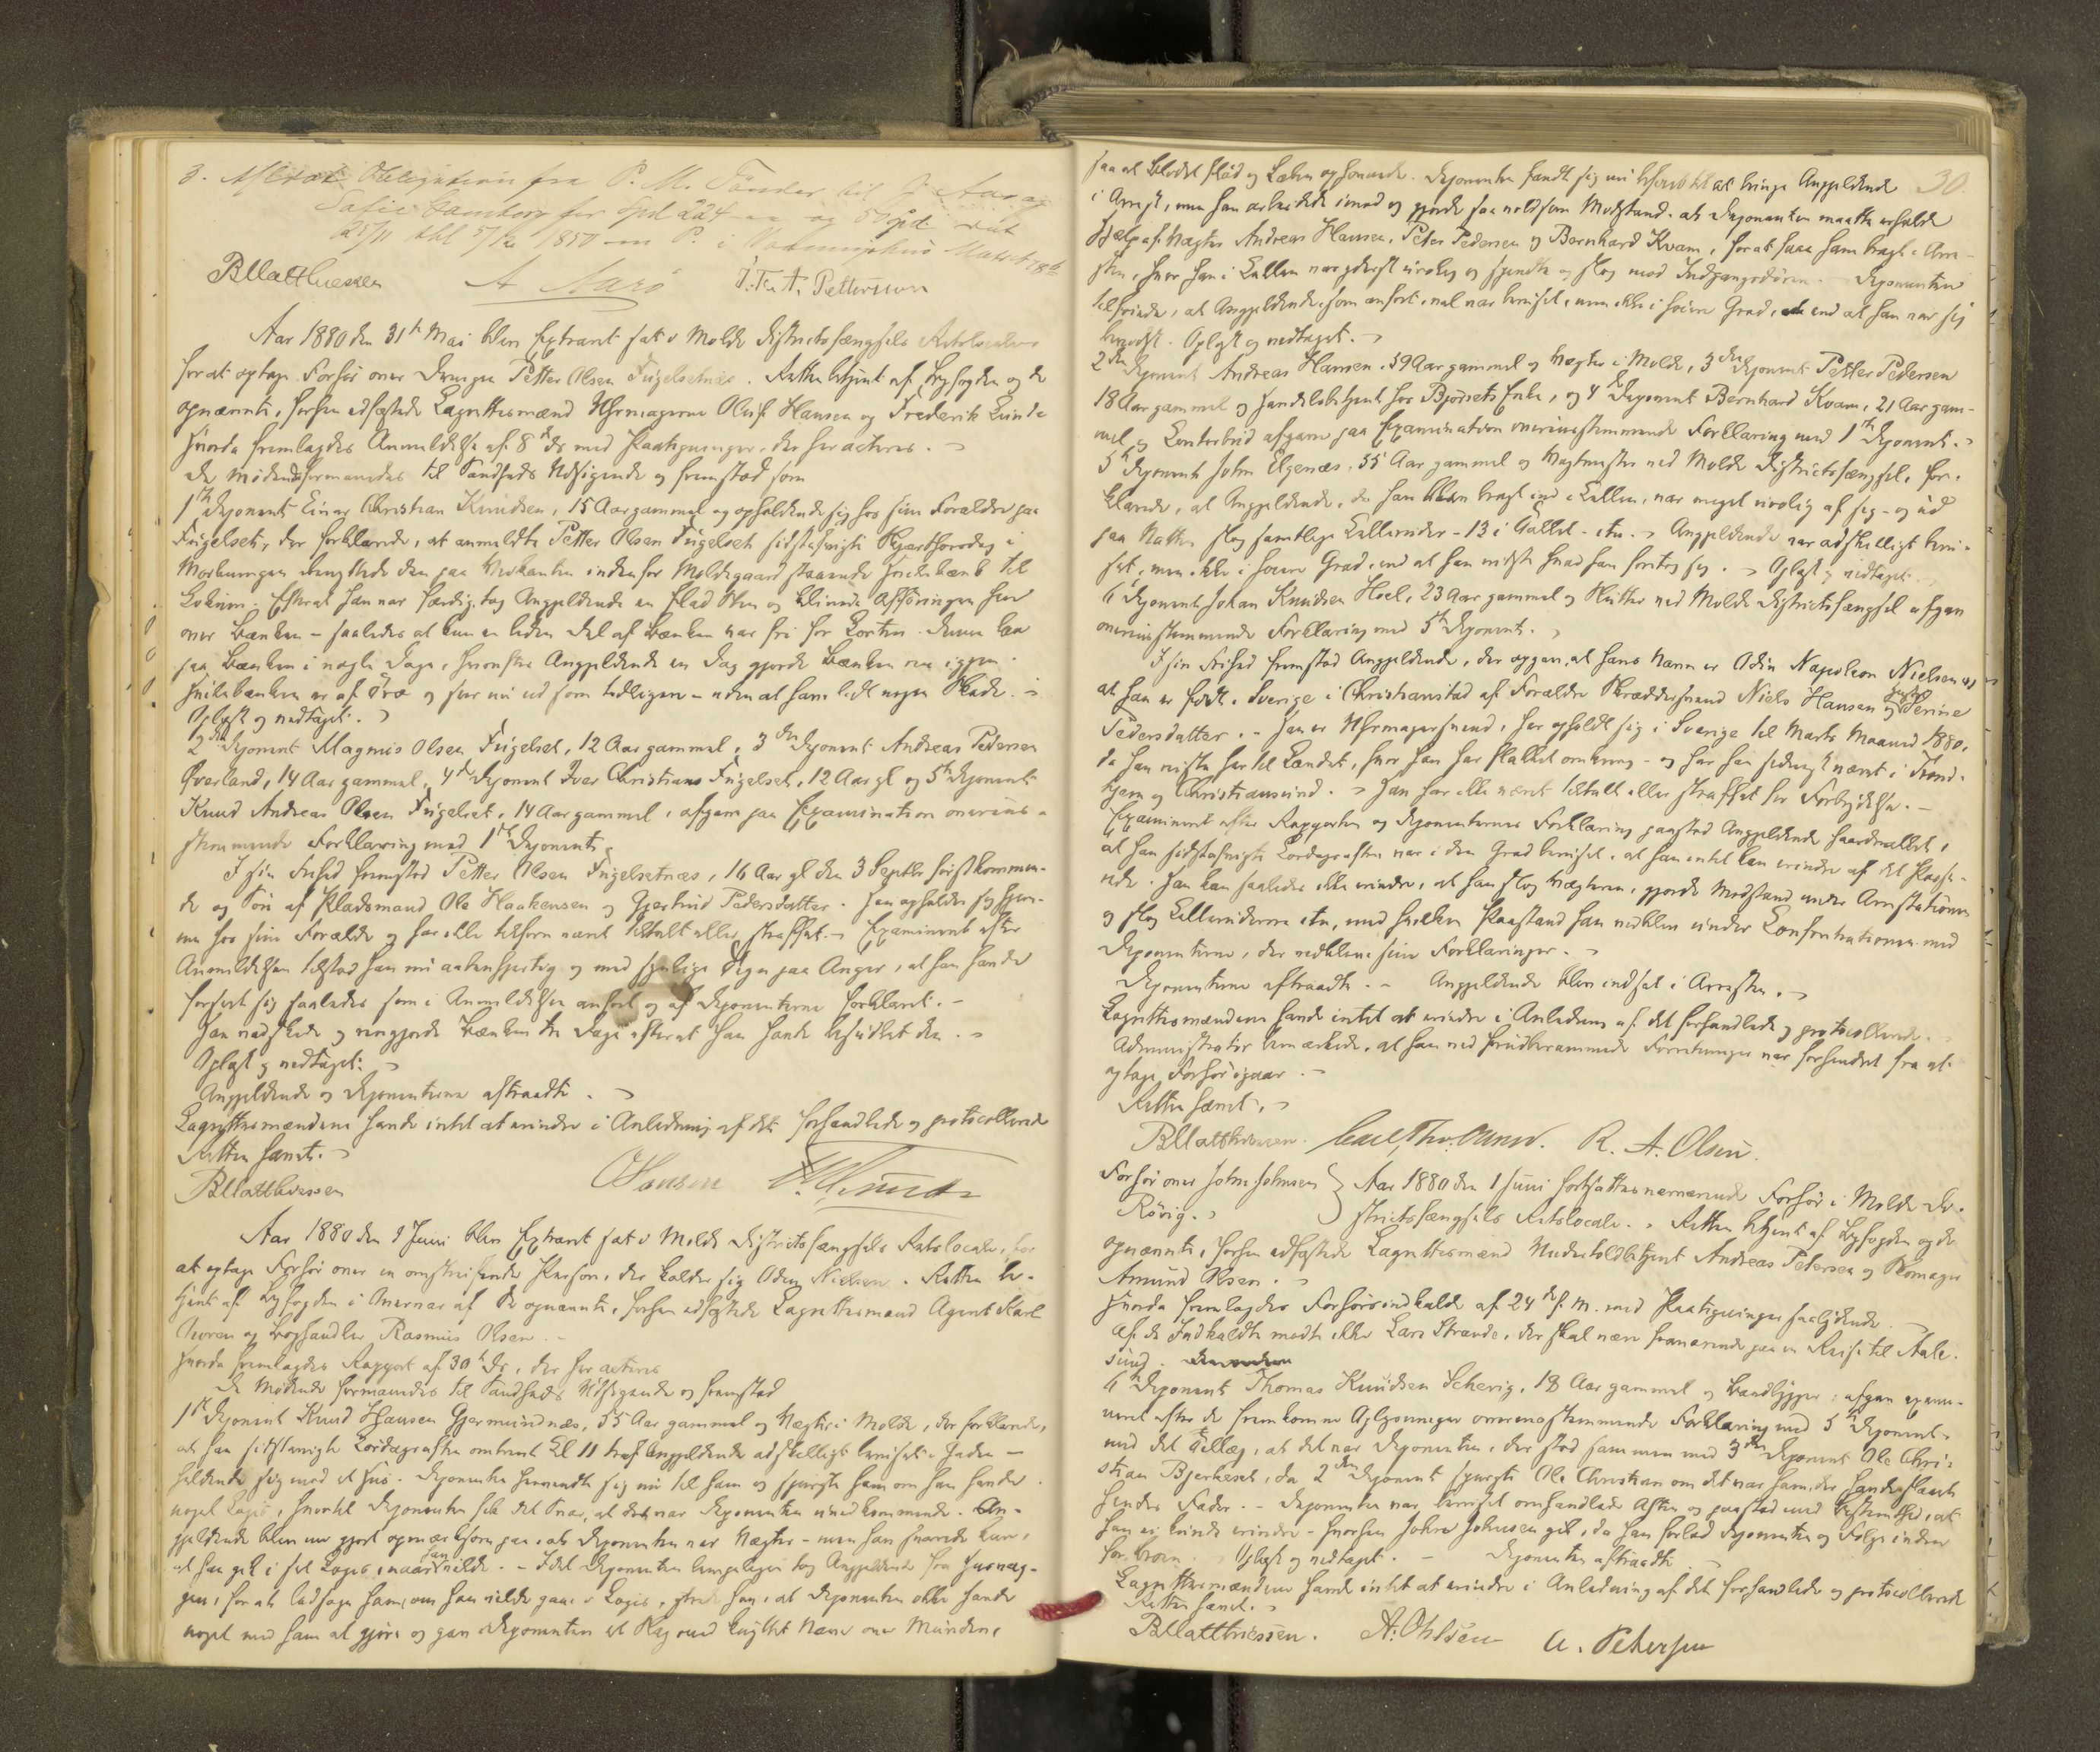 3. Aflæst Obligation fra P. M. Tønder til J. Aar og
Sofie Hamborg for Spd 224 og 50 Spd dat
25/11 thl 5/12 1850
BMatthiessen A Aarø J. F. A. Pettersson
Aar 1880 den 31te Mai blev Extraret sat i Molde Distriktsfængsels Retslocale
for at optage Forhør over Drengen Petter Olsen Fugelsetnæs. Retten betjent af Byfogden og de
opnævnte, forhen edfæstede Lagrettesmænd Uhrmagerne Oluf Hansen og Frederik Lunde
Hvorda fremlagdes Anmeldelse af 8de ds med Paategninger, der her acteres.
De mødende formanedes til Sandheds Udsigende og fremstod som
1ste Deponent Einar Christian Knudsen, 15 Aar gammel og opholdende sig hos sine Forældre paa
Fugelset, der forklarede, at anmeldte Petter Olsen Fugelset sidstafvigte Skjærthorsdag i
Mørkningen benyttede den paa Veikanten indenfor Moldegaard staaende Hvilebænk til
Lokum. Efterat han var færdig, tog Angjeldende en flad Sten og klinede Afføringen hen
over Bænken – saaledes at kun en liden Del af Bænken var fri for Lorten. Denne laa
paa Bænken i nogle Dage, hvorefter Angjeldende en Dag gjorde Bænken ren igjen.
Hvilebænken er af Træ og ser nu ud som tidligere – uden at have lidt nogen Skade.
Oplæst og vedtaget.
2den Deponent Magnus Olsen Fugelset, 12 Aar gammel, 3die Deponent Andreas Pedersen
Øverland, 14 Aar gammel, 4de Deponent Iver Christians Fugelset, 12 Aar gl og 5te Deponent
Knud Andreas Olsen Fugelset, 14 Aar gammel, afgav paa Examination overens-
stemmende Forklaring med 1ste Deponent.
I sin Frihed fremstod Petter Olsen Fugelsetnæs, 16 Aar gl den 3 Septbr førstkommen-
de og Søn af Pladsmand Ole Haakensen og Gjertrud Pedersdatter. Han opholder sig hjem-
me hos sine Forældre og har ikke tilforn været tiltalt eller straffet. Examineret efter
Anmeldelsen tilstod han nu aabenhjertig og med synlige Tegn paa Anger, at han havde
forholdt sig saaledes som i Anmeldelsen anført og af Deponenterne forklaret. –
Han vadskede og rengjorde Bænken tre Dage efterat han havde besudlet den.
Oplæst og vedtaget.
Angjeldende og Deponenterne aftraadte.
Lagrettesmændene havde intet at erindre i Anledning af det forhandlede og protocollerede
Retten hævet.
BMatthiessen OHansen
Aar 1880 den 1 Juni blev Extraret sat i Molde Distriktsfængsels Retslocale, for
at optage Forhør over en omstreifende Person, der kalder sig Odin Nielsen. Retten be-
tjent af Byfogden i Overvær af de opnævnte, forhen edfæstede Lagrettesmænd Agent Karl
Thoren og Boghandler Rasmus Olsen. –
Hvorda fremlagdes Rapport af 30te ds, der her acteres
De Mødende formanedes til Sandheds Udsigende og fremstod
1ste Deponent Knud Hansen Gjermundnæs, 55 Aar gammel og Vægter i Molde, der forklarede,
at han sidstafvigte Lørdagsaften omtrent Kl 11 traf Angjeldende adskilligt beruset i Gaden –
holdende sig mod et Hus. Deponenten henvendte sig nu til ham og spurgte ham om han havde
noget Logis, hvortil Deponenten fik det Svar, at det var Deponenten uvedkommende. An-
gjeldende blev nu gjort opmærksom paa, at Deponenten var Vægter – men han svarede kun,
at han gik i sit Logis, naar han vilde. – Idet Deponenten lempeligen tog Angjeldende fra Husvæg-
gen, for at ledsage ham, om han vilde gaa i Logis, ytrede han, at Deponenten ikke havde
noget med ham at gjøre og gav Deponenten et Slag med knyttet Næve over Munden,
30.
saa at Blodet flød og Læben ophovnede. Deponenten fandt sig nu beføiet til at bringe Angjeldende
i Arrest, men han arbeidede imod og gjorde saa voldsom Modstand, at Deponenten maatte erholde
Hjælp af Vægter Andreas Hansen, Peter Pedersen og Bernhard Kvam, for at faae ham bragt i Arre-
sten, hvor han i Cellen var yderst urolig og spændte og slog mod Indgangsdøren. Deponenten
tilføiede, at Angjeldende, som anført, vel var beruset, men ikke i høiere Grad, end at han var sig
bevidst. Oplæst og vedtaget.
2den Deponent Andreas Hansen, 59 Aar gammel og Vægter i Molde, 3die Deponent Petter Pedersen
18 Aar gammel og Handelsbetjent hos Bjørsets Enke, og 4de Deponent Bernhard Kvam, 21 Aar gam-
mel og Contorbud afgav paa Examination overensstemmende Forklaring med 1ste Deponent.
5te Deponent John Elgenæs, 55 Aar gammel og Vagtmester ved Molde Distriktsfængsel, for-
klarede, at Angjeldende, da han blev bragt ind i Cellen, var meget urolig af sig – og ud
paa Natten slog samtlige Celleruder – 13 i Tallet – itu. Angjeldende var adskilligt beru-
set, men ikke i høiere Grad, end at han vidste hvad han foretog sig. Oplæst og vedtaget.
6te Deponent Johan Knudsen Hoel, 23 Aar gammel og Slutter ved Molde Distriktsfængsel afgav
overensstemmende Forklaring med 5te Deponent.
I sin Frihed fremstod Angjeldende, der opgav, at hans Navn er Odin Napoleon Nielsen og
at han er født i Sverige i Christianstad af Forældre Skræddersvend Niels Hansen og Hustru Serine
Pedersdatter. – Han er Uhrmagersvend, har opholdt sig i Sverige til Marts Maaned 1880,
da han reiste her til Landet, hvor han har flakket omkring – og har han sidenefter været i Trond-
hjem og Christianssund. Han har ikke været tiltalt eller straffet for Forbrydelse. –
Examineret efter Rapporten og Deponenternes Forklaring paastod Angjeldende haardnakket,
at han sidstafvigte Lørdagsaften var i den Grad beruset, at han intet kan erindre af det Passe-
rede. Han kan saaledes ikke erindre, at han slog Vægteren, gjorde Modstand under Arrestationen
og slog Celleruderne itu, med hvilken Paastand han vedblev under Confrontationen med
Deponenterne, der vedbleve sine Forklaringer.
Deponenterne aftraadte. – Angjeldende blev indsat i Arresten.
Lagrettesmændene havde intet at erindre i Anledning af det forhandlede og protocollerede.
Administrator bemærkede, at han ved forudberammede Forretninger var forhindret fra at
optage Forhør igaar. –
Retten hævet.
BMatthiessen. Carl Tho. R. A. Olsen.
Forhør over John Johnsen Aar 1880 den 1 Juni fortsattes nærværende Forhør i Molde Di-
Rørvig. striktsfængsels Retslocale. Retten betjent af Byfogden og de
opnævnte, forhen edfæstede Lagrettesmænd Undertoldbetjent Andreas Petersen og Skomager
Amund Olsen.
Hvorda fremlagdes Forhørsindkaldelse af 24de f. M. med Paategninger saalydende.
Af de Indkaldte mødte ikke Lars Strande, der skal være fraværende paa en Reise til Aale-
sund.
6te Deponent Thomas Knudsen Schevig, 18 Aar gammel og : afgav exami-
neret efter de fremkomne Oplysninger overensstemmende Forklaring med 5te Deponent
med det Tillæg, at det var Deponenten, der stod sammen med 3die Deponent Ole Chri-
stian Bjerkeset, da 2den Deponent spurgte Ole Christian om det var ham, der havde slaaet
hendes Fader. – Deponenten var beruset omhandlede Aften og paastod med Bestemthed, at
han ei kunde erindre – hvorhen John Johnsen gik, da han forlod Deponenten og Følge inden
for Oplæst og vedtaget. – Deponenten aftraadte
Lagrettesmændene havde intet at erindre i Anledning af det forhandlede og protocollerede
Retten hævet.
BMatthiessen. A: Ohlsen A. Petersen